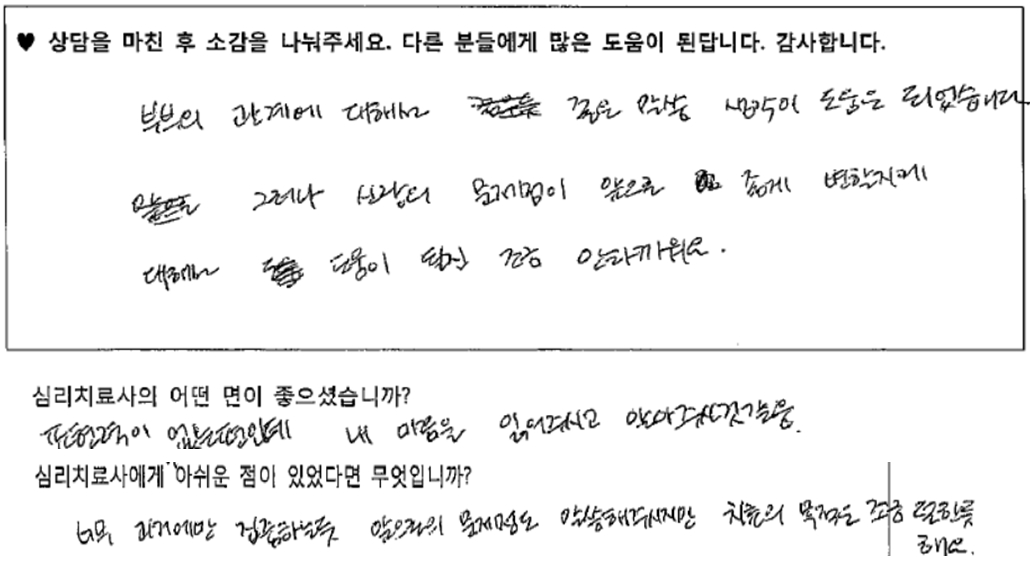 ♥ 상담을 마친 후 소감을 나눠주세요. 다른 분들에게 많은 도움이 된답니다. 감사합니다.
부부의 관계에 대해서 깊은 생각이 도움은 되었습니다
그러나 신랑의 문제점이 앞으로 좋게 변할지에
대해서 도움이 될지 조금 안타까워요.
심리치료사의 어떤 면이 좋으셨습니까?
표현력이 없는편인데 내 마음을 읽어주시고 알아주신것같음.
심리치료사에게 아쉬운 점이 있었다면 무엇입니까?
너무 과거에만 집중하는듯 앞으로의 문제점도 말씀해주시지만 치료의 목적은 조금 덜한듯
해요.